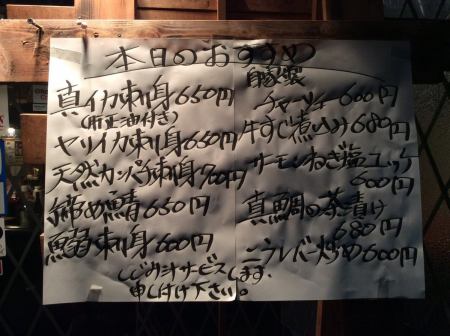 本日のおすすめ
真イカ刺身650円
(肝正油付き)
ヤリイカ刺身650円
天然カンパチ刺身700円
〆め鯖650円
鰯刺身600円
しじみ汁サービスします。
申し付け下さい。
自家製
チャーシュー600円
牛すじ煮込み680円
サーモンねぎ塩ユッケ
600円
真鯛の茶漬け
680円
ニラレバー炒め600円